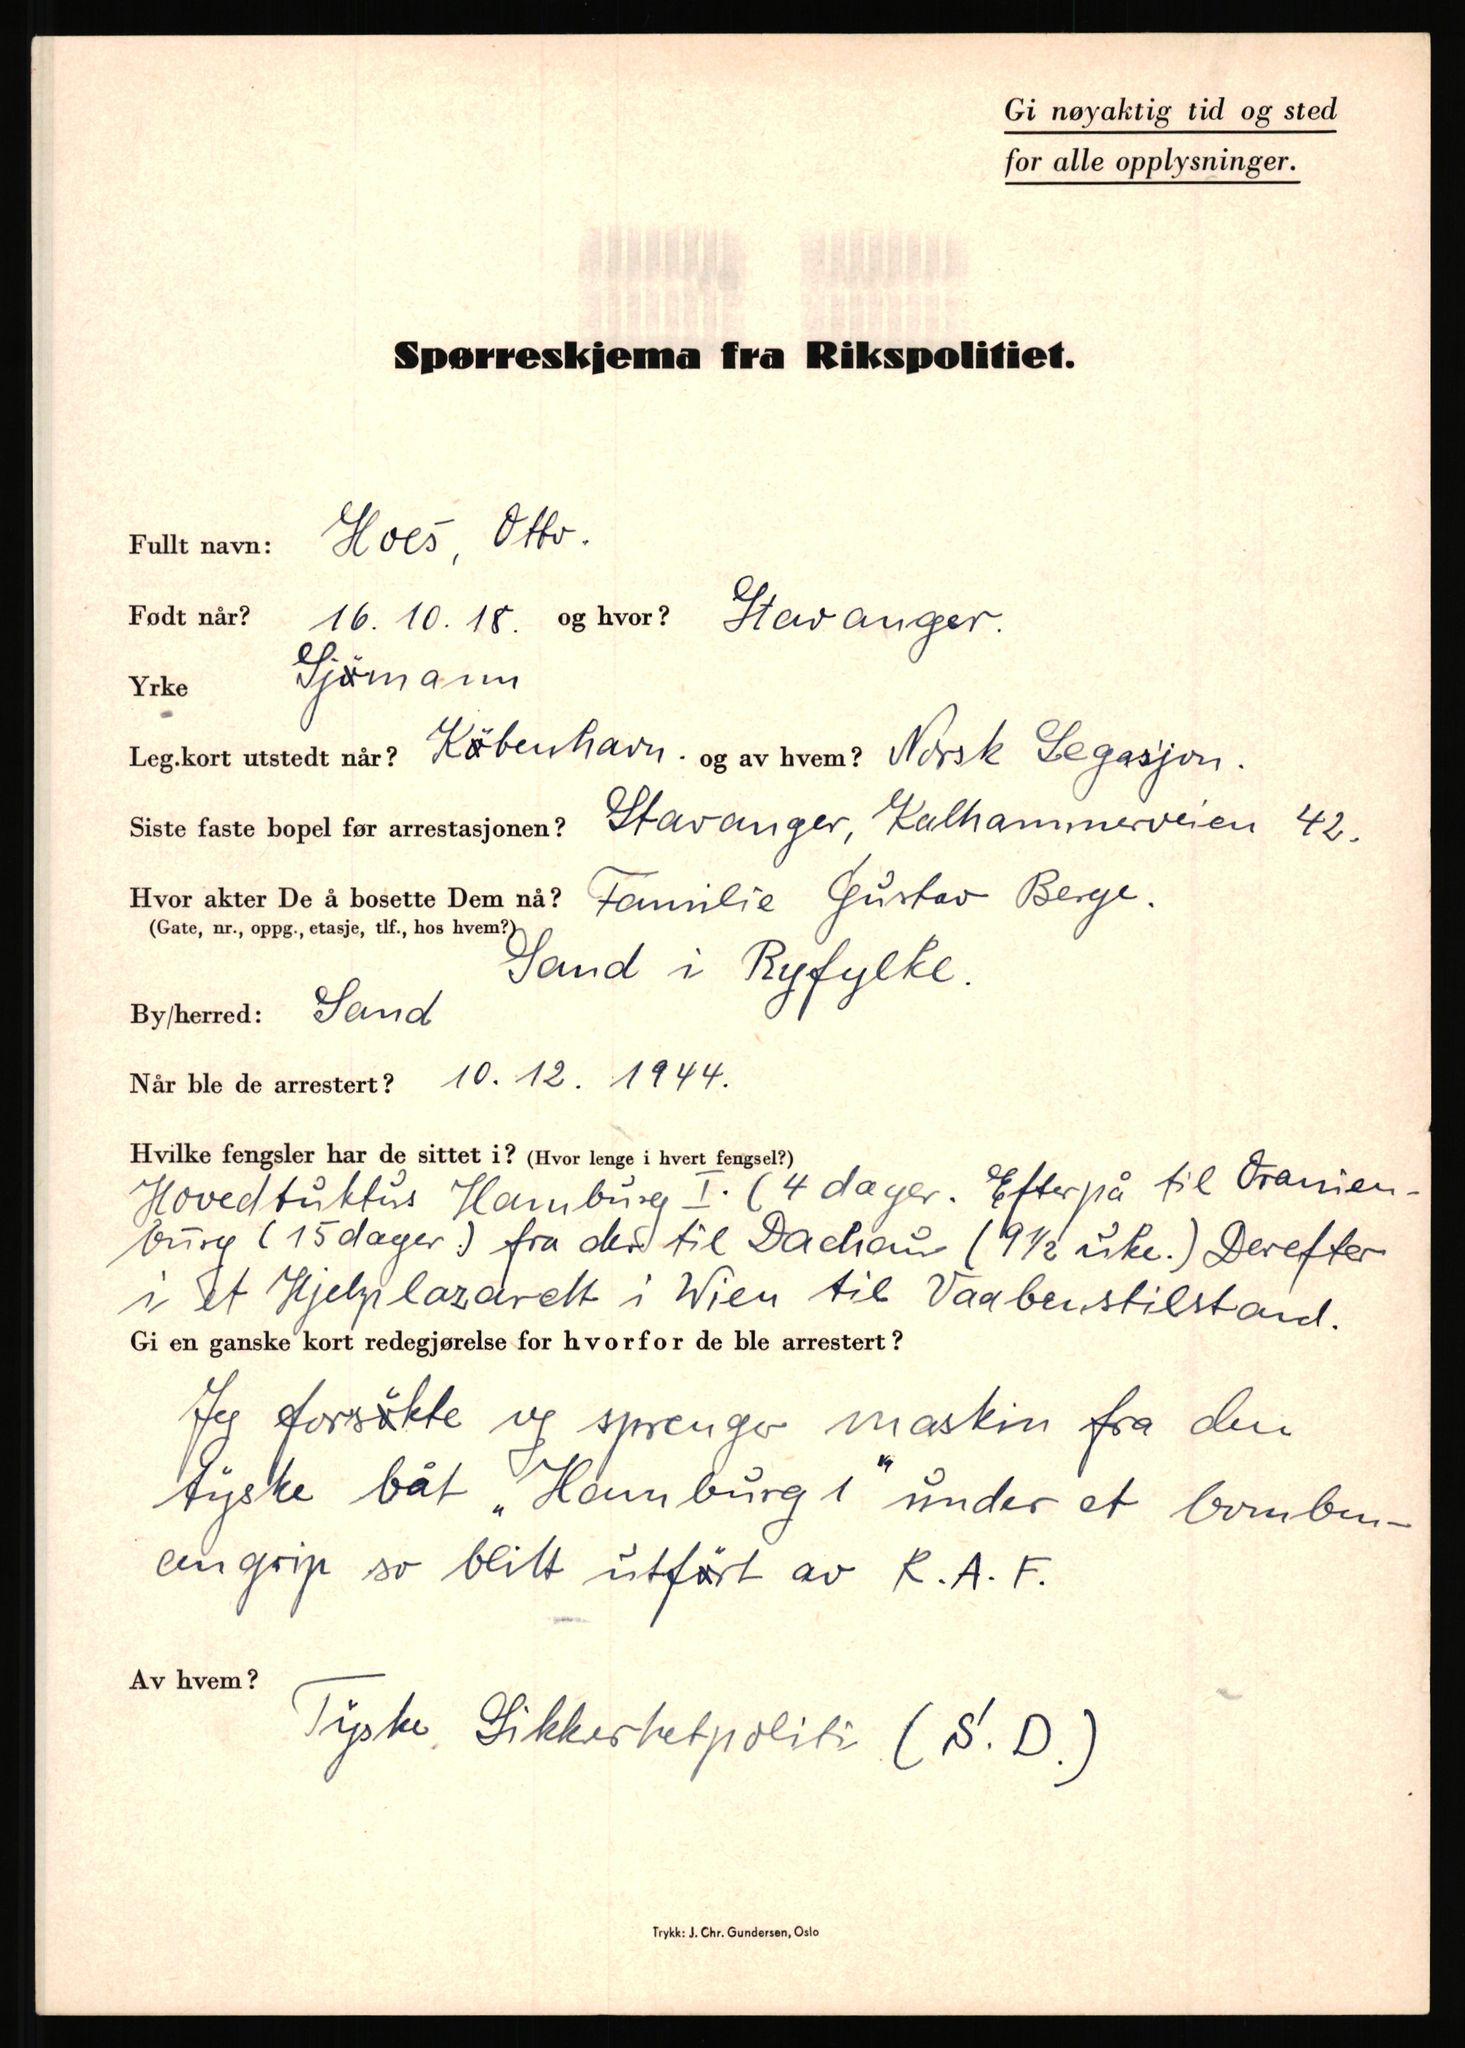 Gi nøyaktig tid og sted
for alle opplysninger.
Spørreskjema fra Rikspolitiet.
Fullt navn: Hoes, Otto.
Født når? 16. 10. 18. og hvor? Stavanger.
Yrke Sjømann
Leg.kort utstedt når? København. og av hvem? Norsk Legasjon.
Siste faste bopel før arrestasjonen? Stavanger, Kalhammerveien 42.
Hvor akter De å bosette Dem nå? Familie Gustav Berge.
(Gate, nr., oppg., etasje, tlf., hos hvem?)
Sand i Ryfylke.
By/herred: Sand
Når ble de arrestert? 10. 12. 1944.
Hvilke fengsler har de sittet i? (Hvor lenge i hvert fengsel?)
Hovedtuktus Hamburg I. (4 dager. Efterpå til Oranien-
burg (15 dager.) fra der til Dachau (9 1/2 uke.) Derefter
i et Hjelplazarett i Wien til Vaabenstilstand.
Gi en ganske kort redegjørelse for hvorfor de ble arrestert?
Jeg forsøkte og sprenger maskin fra den
tyske båt „Hamburg 1" under et bomben-
angrip so blitt utført av R. A. F.
Av hvem? Tyske Sikkerhetpoliti (S. D.)
Trykk: J. Chr. Gundersen, Oslo